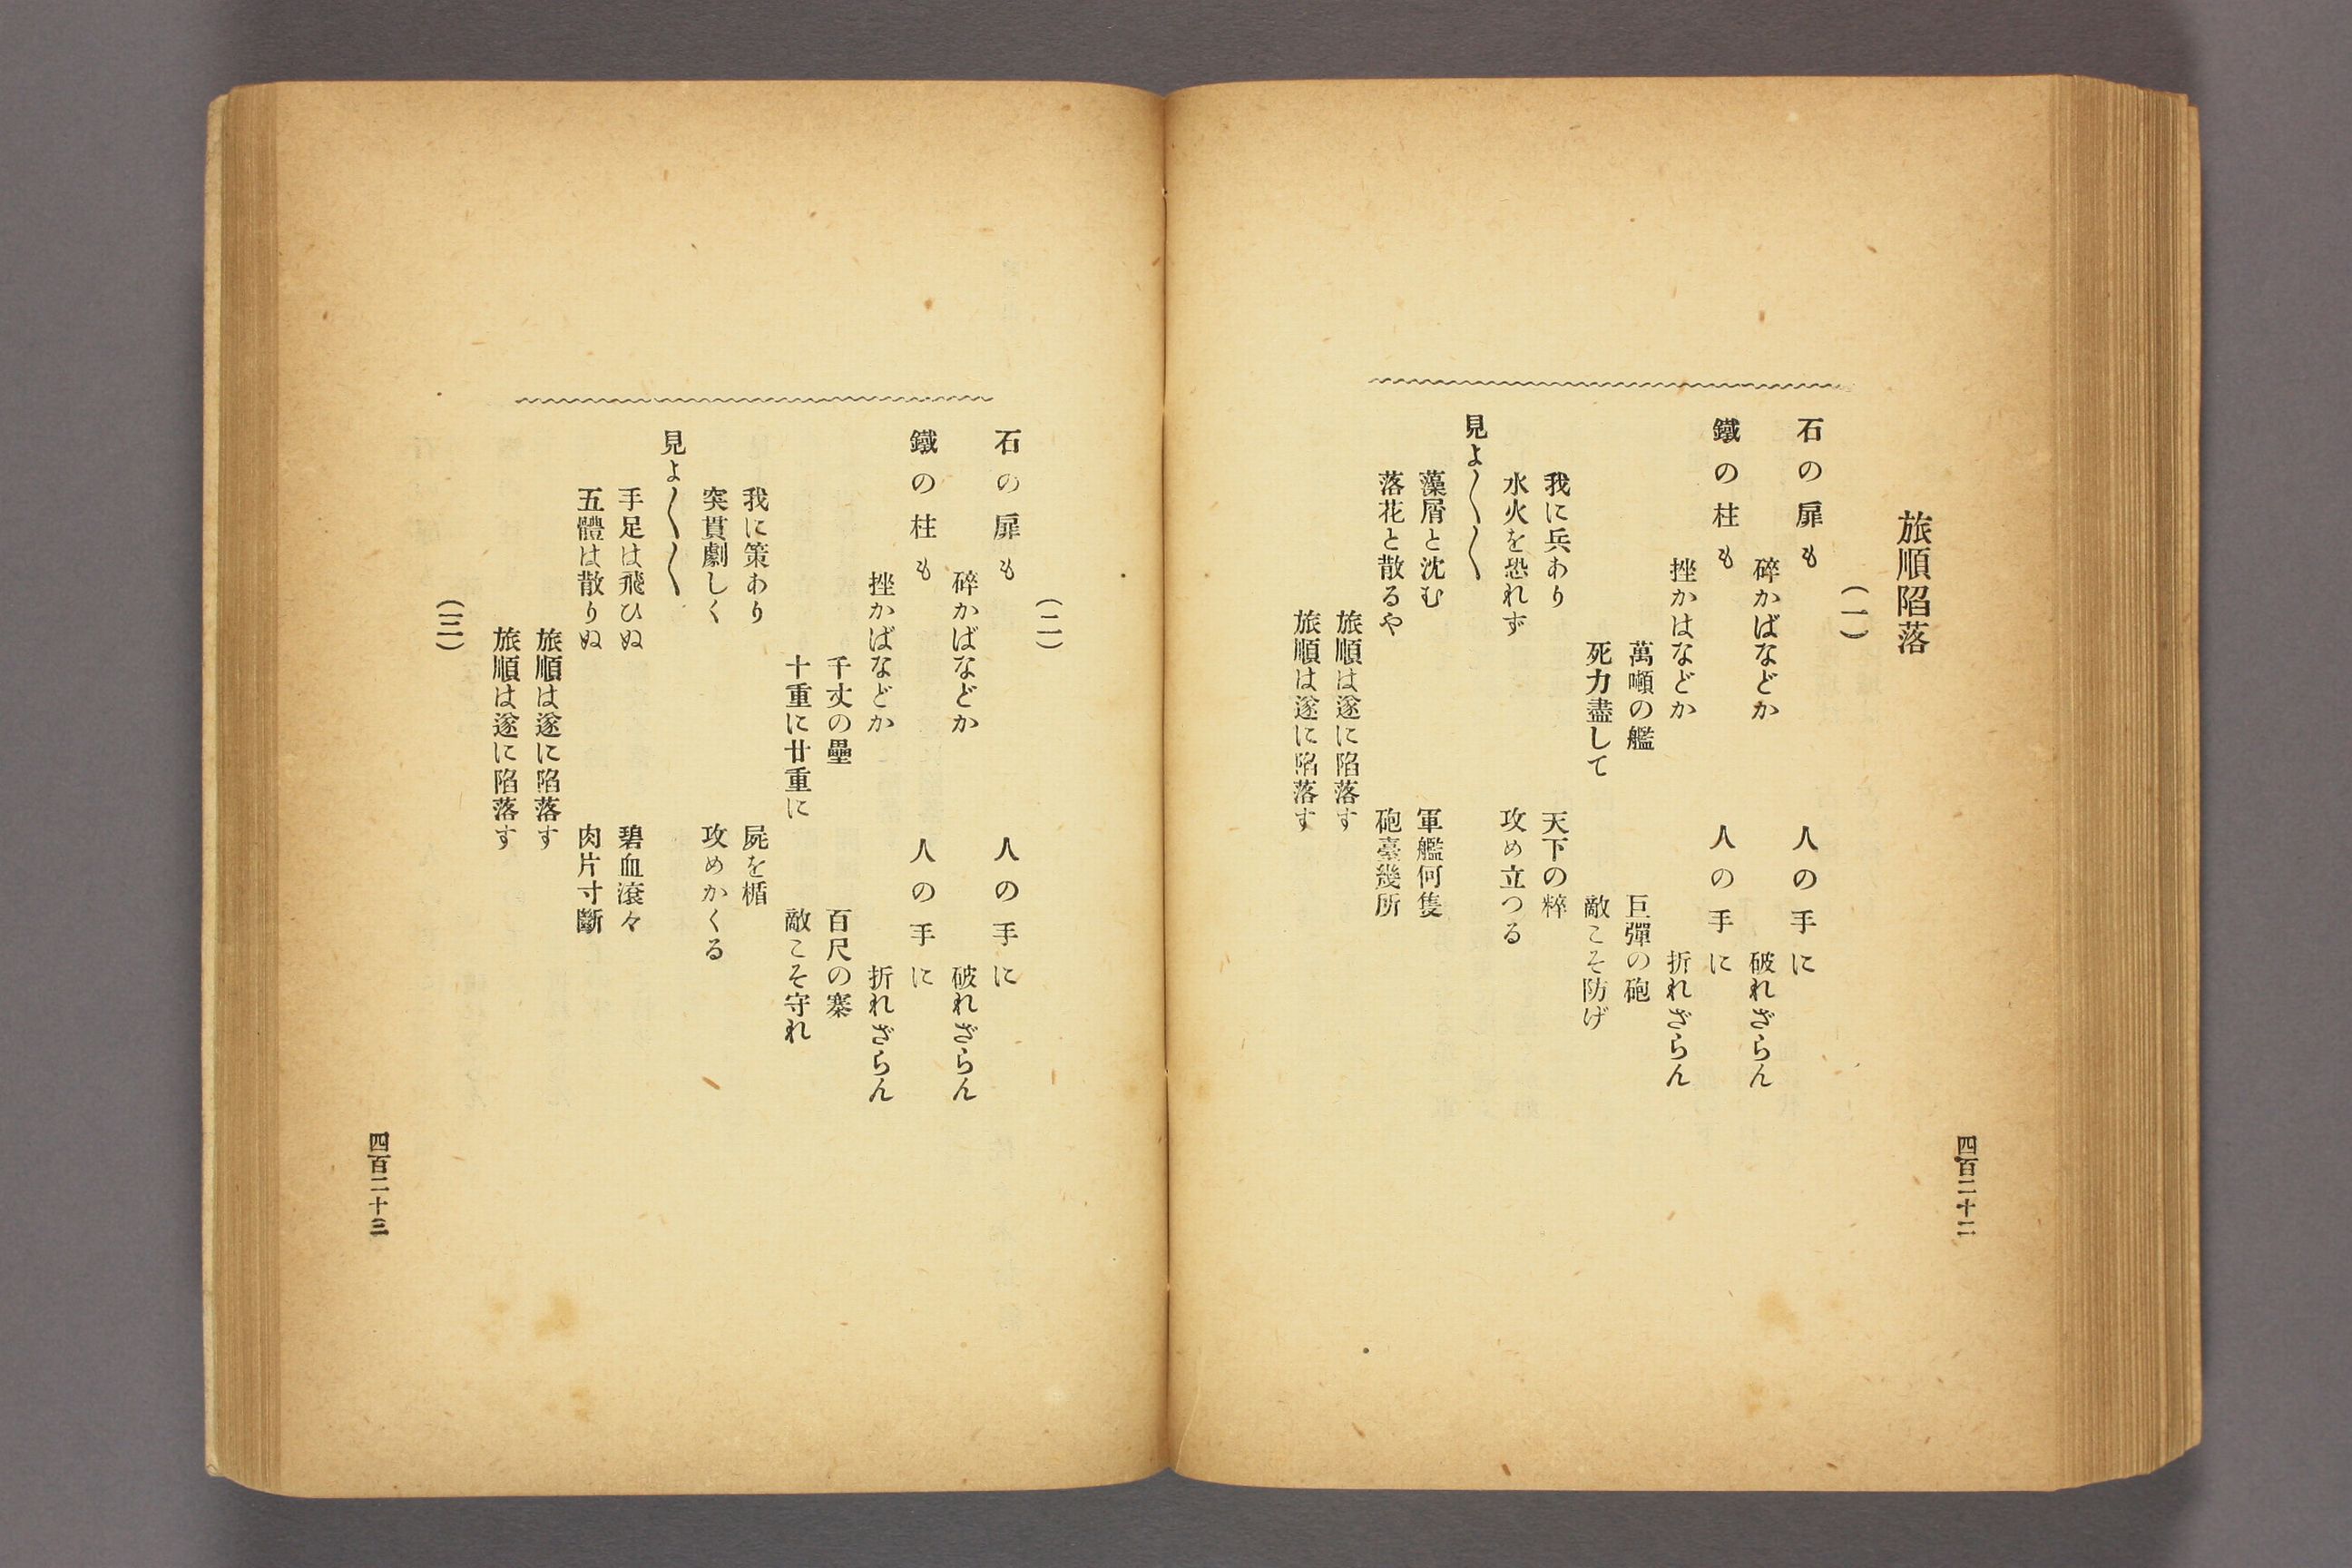 旅順陷落
(一)
石の扉も　人の手に
碎かばなどか　破れざらん
鐵の柱も　人の手に
挫かはなどか　折れざらん
萬噸の艦　巨彈の砲
死力盡して　敵こそ防げ
我に兵あり　天下の粹
水火を恐れず　攻め立つる
見よ〱〱
藻屑と沈む　軍艦何隻
落花と散るや　砲臺幾所
旅順は遂に陷落す
旅順は遂に陷落す
四百二十二
(二)
石の扉も　人の手に
碎かばなどか　破れざらん
鐵の柱も　人の手に
挫かばなどか　折れざらん
千丈の壘　百尺の寨
十重に廿重に　敵こそ守れ
我に策あり　屍を楯
突貫劇しく　攻めかくる
見よ〱〱
手足は飛ひぬ　碧血滾々
五體は散りぬ　肉片寸斷
旅順は遂に陷落す
旅順は遂に陷落す
(三)
四百二十三